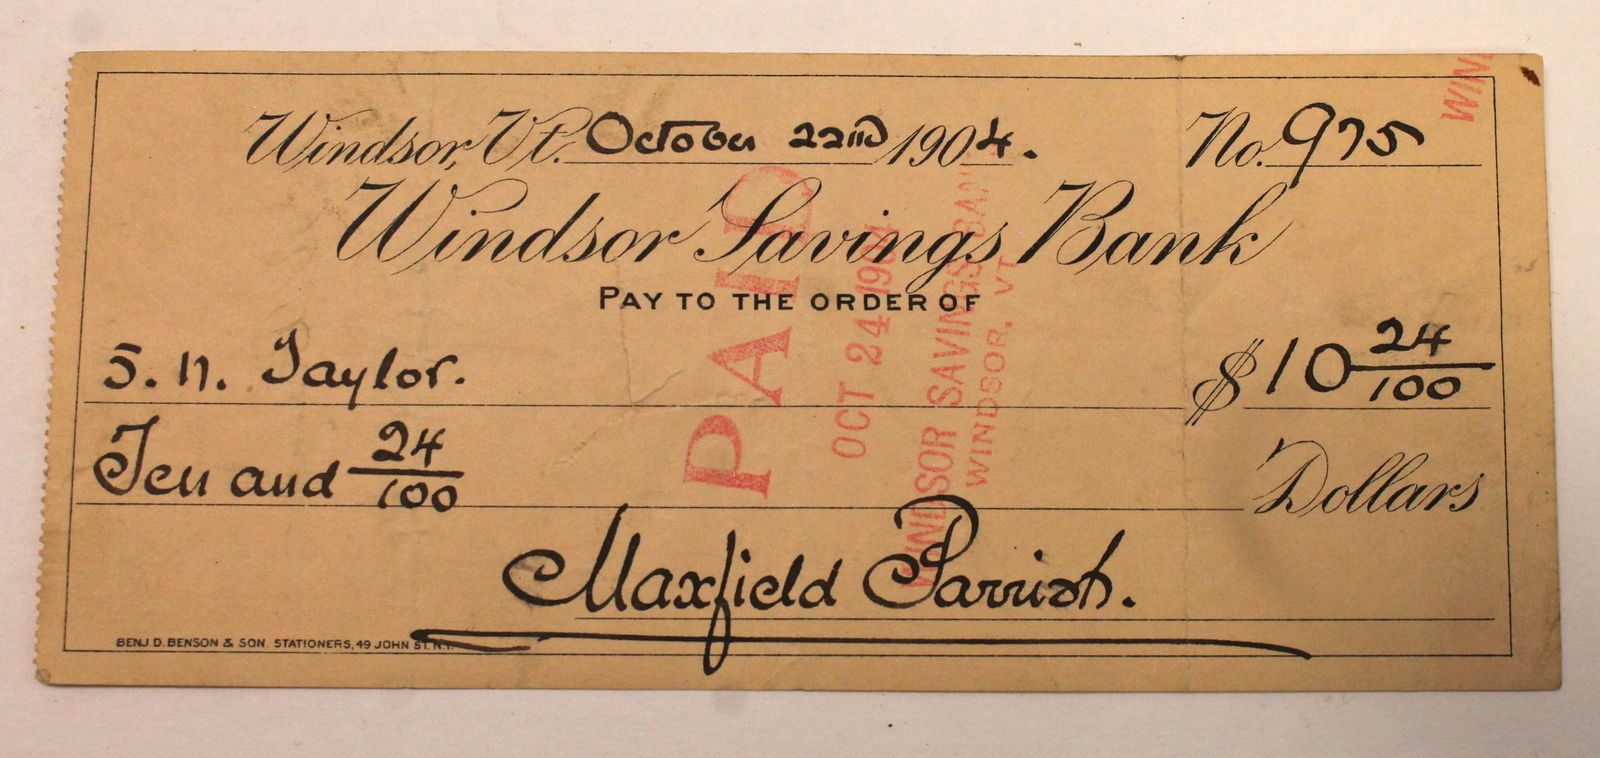 Windsor, Vt. October 22nd 1904. No. 975
Windsor Savings Bank
PAY TO THE ORDER OF
S. N. Taylor. $10 24/100
Ten and 24/100 Dollars
Maxfield Parrish.
BENJ D. BENSON & SON. STATIONERS, 49 JOHN ST. N.Y.
PAID
OCT 24 1904
WINDSOR SAVINGS BANK
WINDSOR, VT
WIN